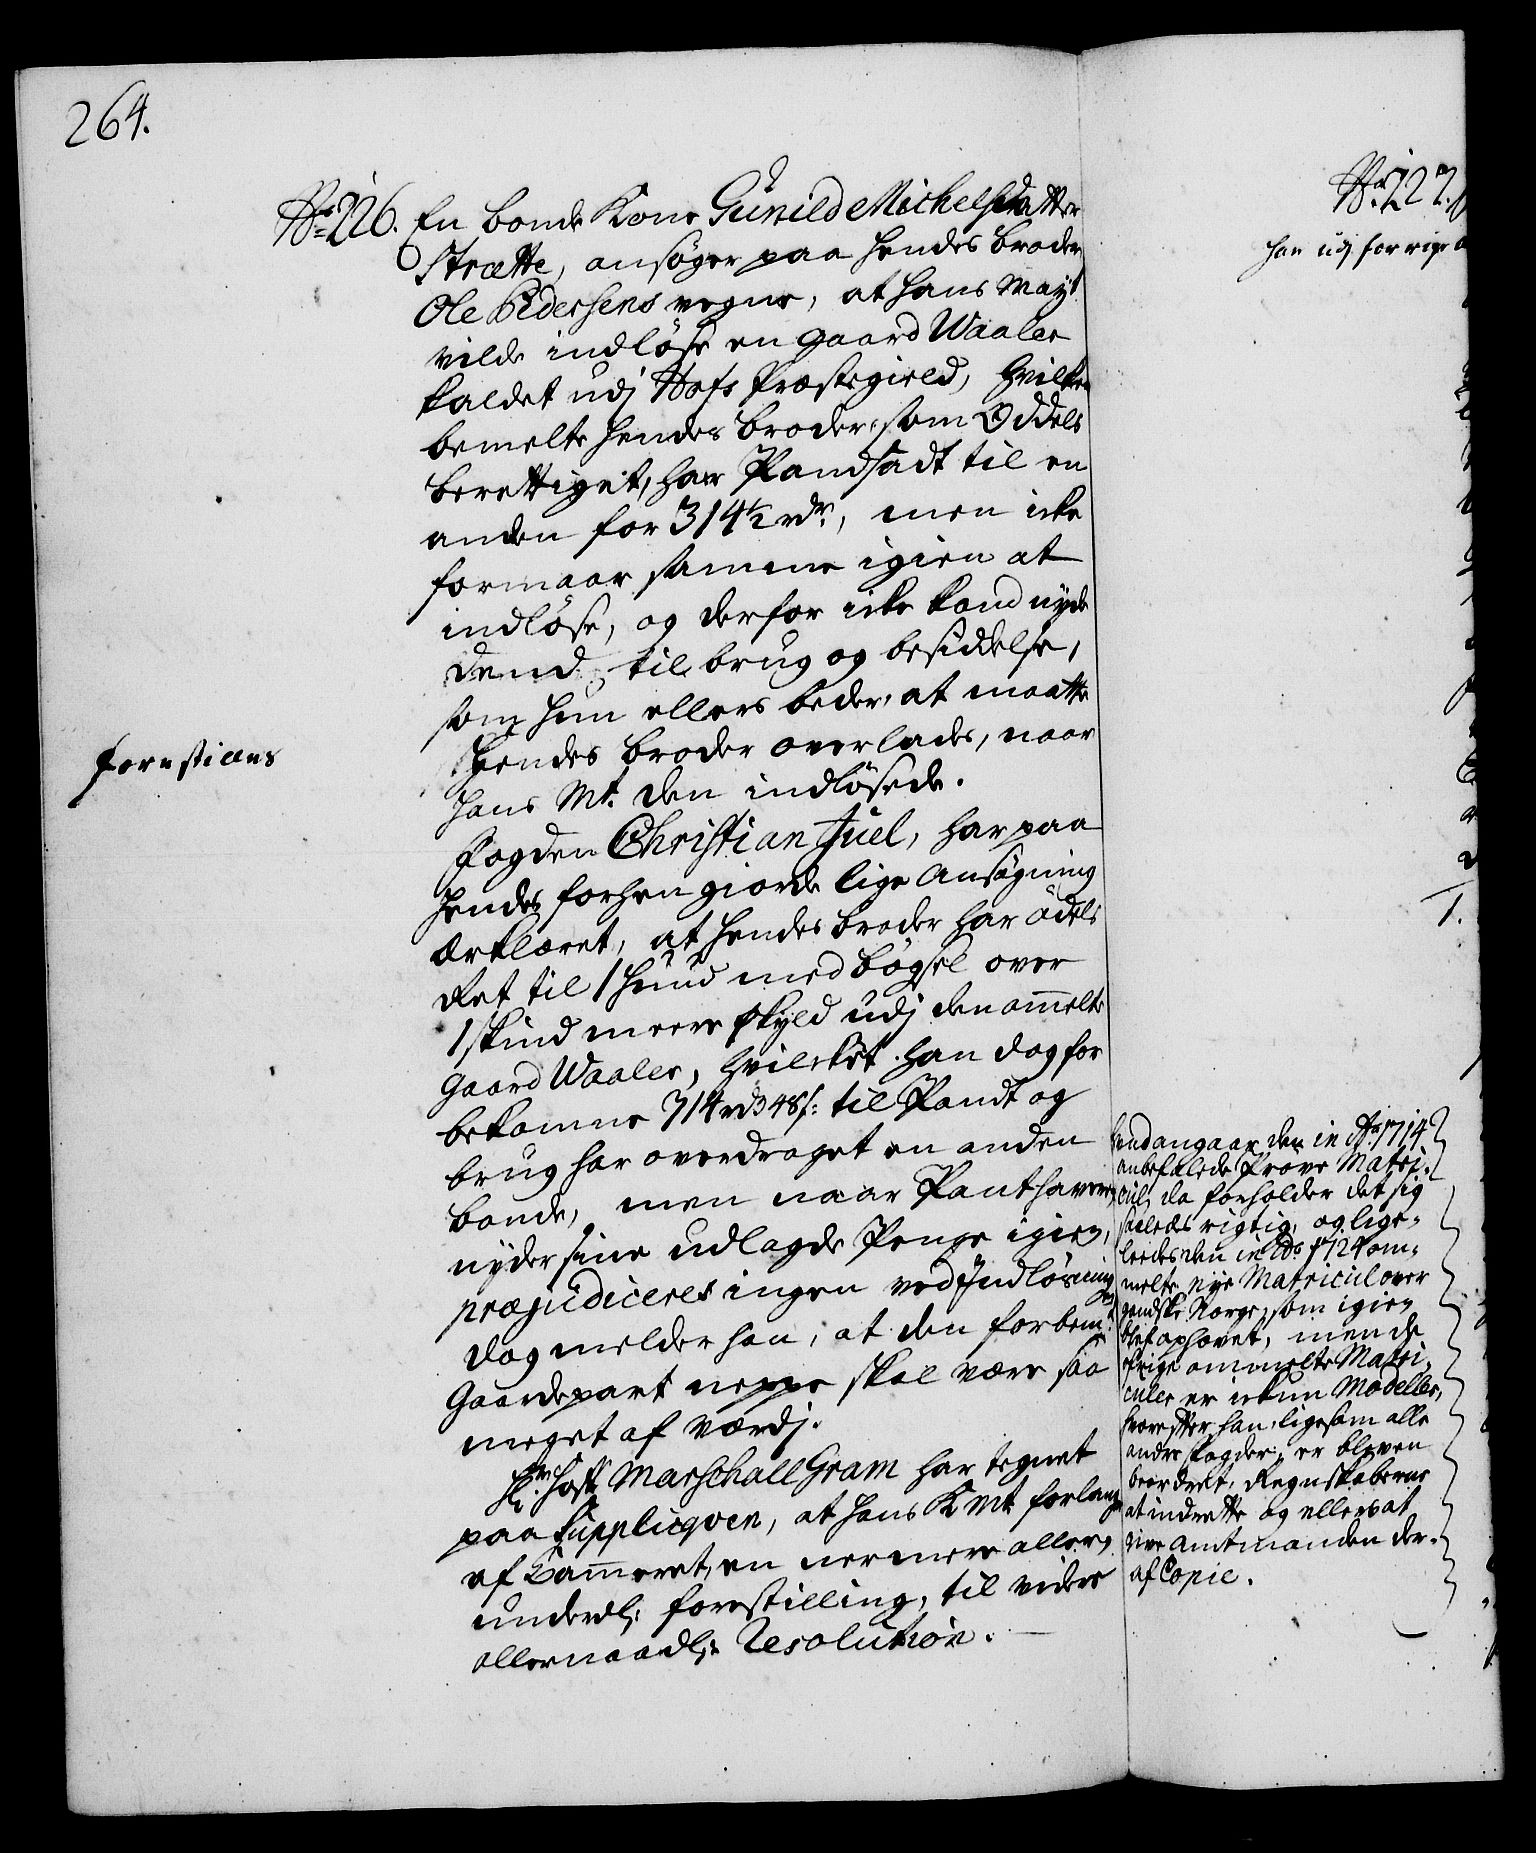 264.
No 226. En bonde Kone Gunild Michelsdatter
Strætte, ansøger paa hendes broder
Ole Pedersens vegne, at hans Mayt
vilde indløse en gaard Waaler
kaldet udj Hofs Præstegield, hvilken
bemelte hendes broder, som Oddels
berettiget, har Pandsadt til en
anden for 314½ rdr, men icke
formaar samme igien at
indløse, og derfor icke kand nyde
dend til brug og besiddelse,
som hun ellers beder, at maatte
hendes broder overlades, naar
hans Mt. den indløsede.
forestilles
Fogden Christian Juel, har paa
hendes forhen giorde lige Ansøgning
Ærklæret, at hendes broder har Odels
Ret til 1 Huud med bøgsel over
1 skind meere skyld udj den ommelte
gaard Waaler, hvilcket han dog for
bekomne 714 rd 3 48 s: til Pandt og
brug har overdraget en anden
bonde, men naar Panthaveren
nyder sine udlagde Penge igien,
præjudiceres ingen ved Indløsningen
dog melder han, at den forbemt
Gaardepart neppe skal være saa
meget af værdj.
Hr: Hof Marschall Gram har tegnet
paa Suppliqven, at hans K Mt forlanger
af Cammeret, en nermere aller
underdl: forestilling, til videre
allernaadl: Resolution.
No. 227.
han udj forrige
1.
hend angaar den in Ao 1714
anbefalede Prøve Matri-
cul, da forholder det sig
saaleds rigtig, og lige-
leedes den in Ao 1724 om-
melte nye Matricul over
gandske Norge, som igien
blef ophævet, men de
øfrige ommelte Matri-
culer er ickun Modeller,
hvorefter han, ligesom alle
andre Fogder, er bleven
beordret, Regnskaberne
at indrette og ellers at
give Amtmanden der-
af Copie.